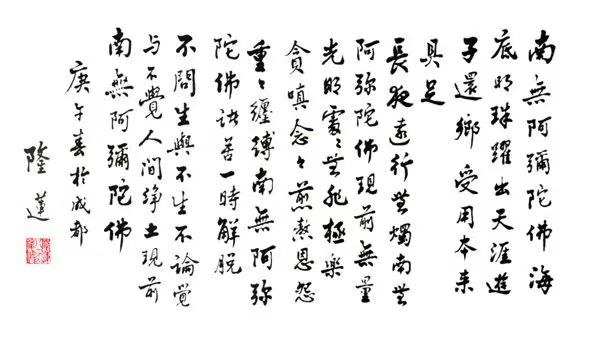 南無阿彌陀佛海
底明珠躍出天涯遊
子還鄉受用本来
具足
長夜遠行無燭南無
阿弥陀佛現前無量
光明處〻無非極樂
貪嗔念〻煎熬恩怨
重〻纏縛南無阿弥
陀佛諸善一時解脫
不問生與不生不論覺
与不覺人間淨土現前
南無阿彌陀佛
庚午春於成都
隆蓮